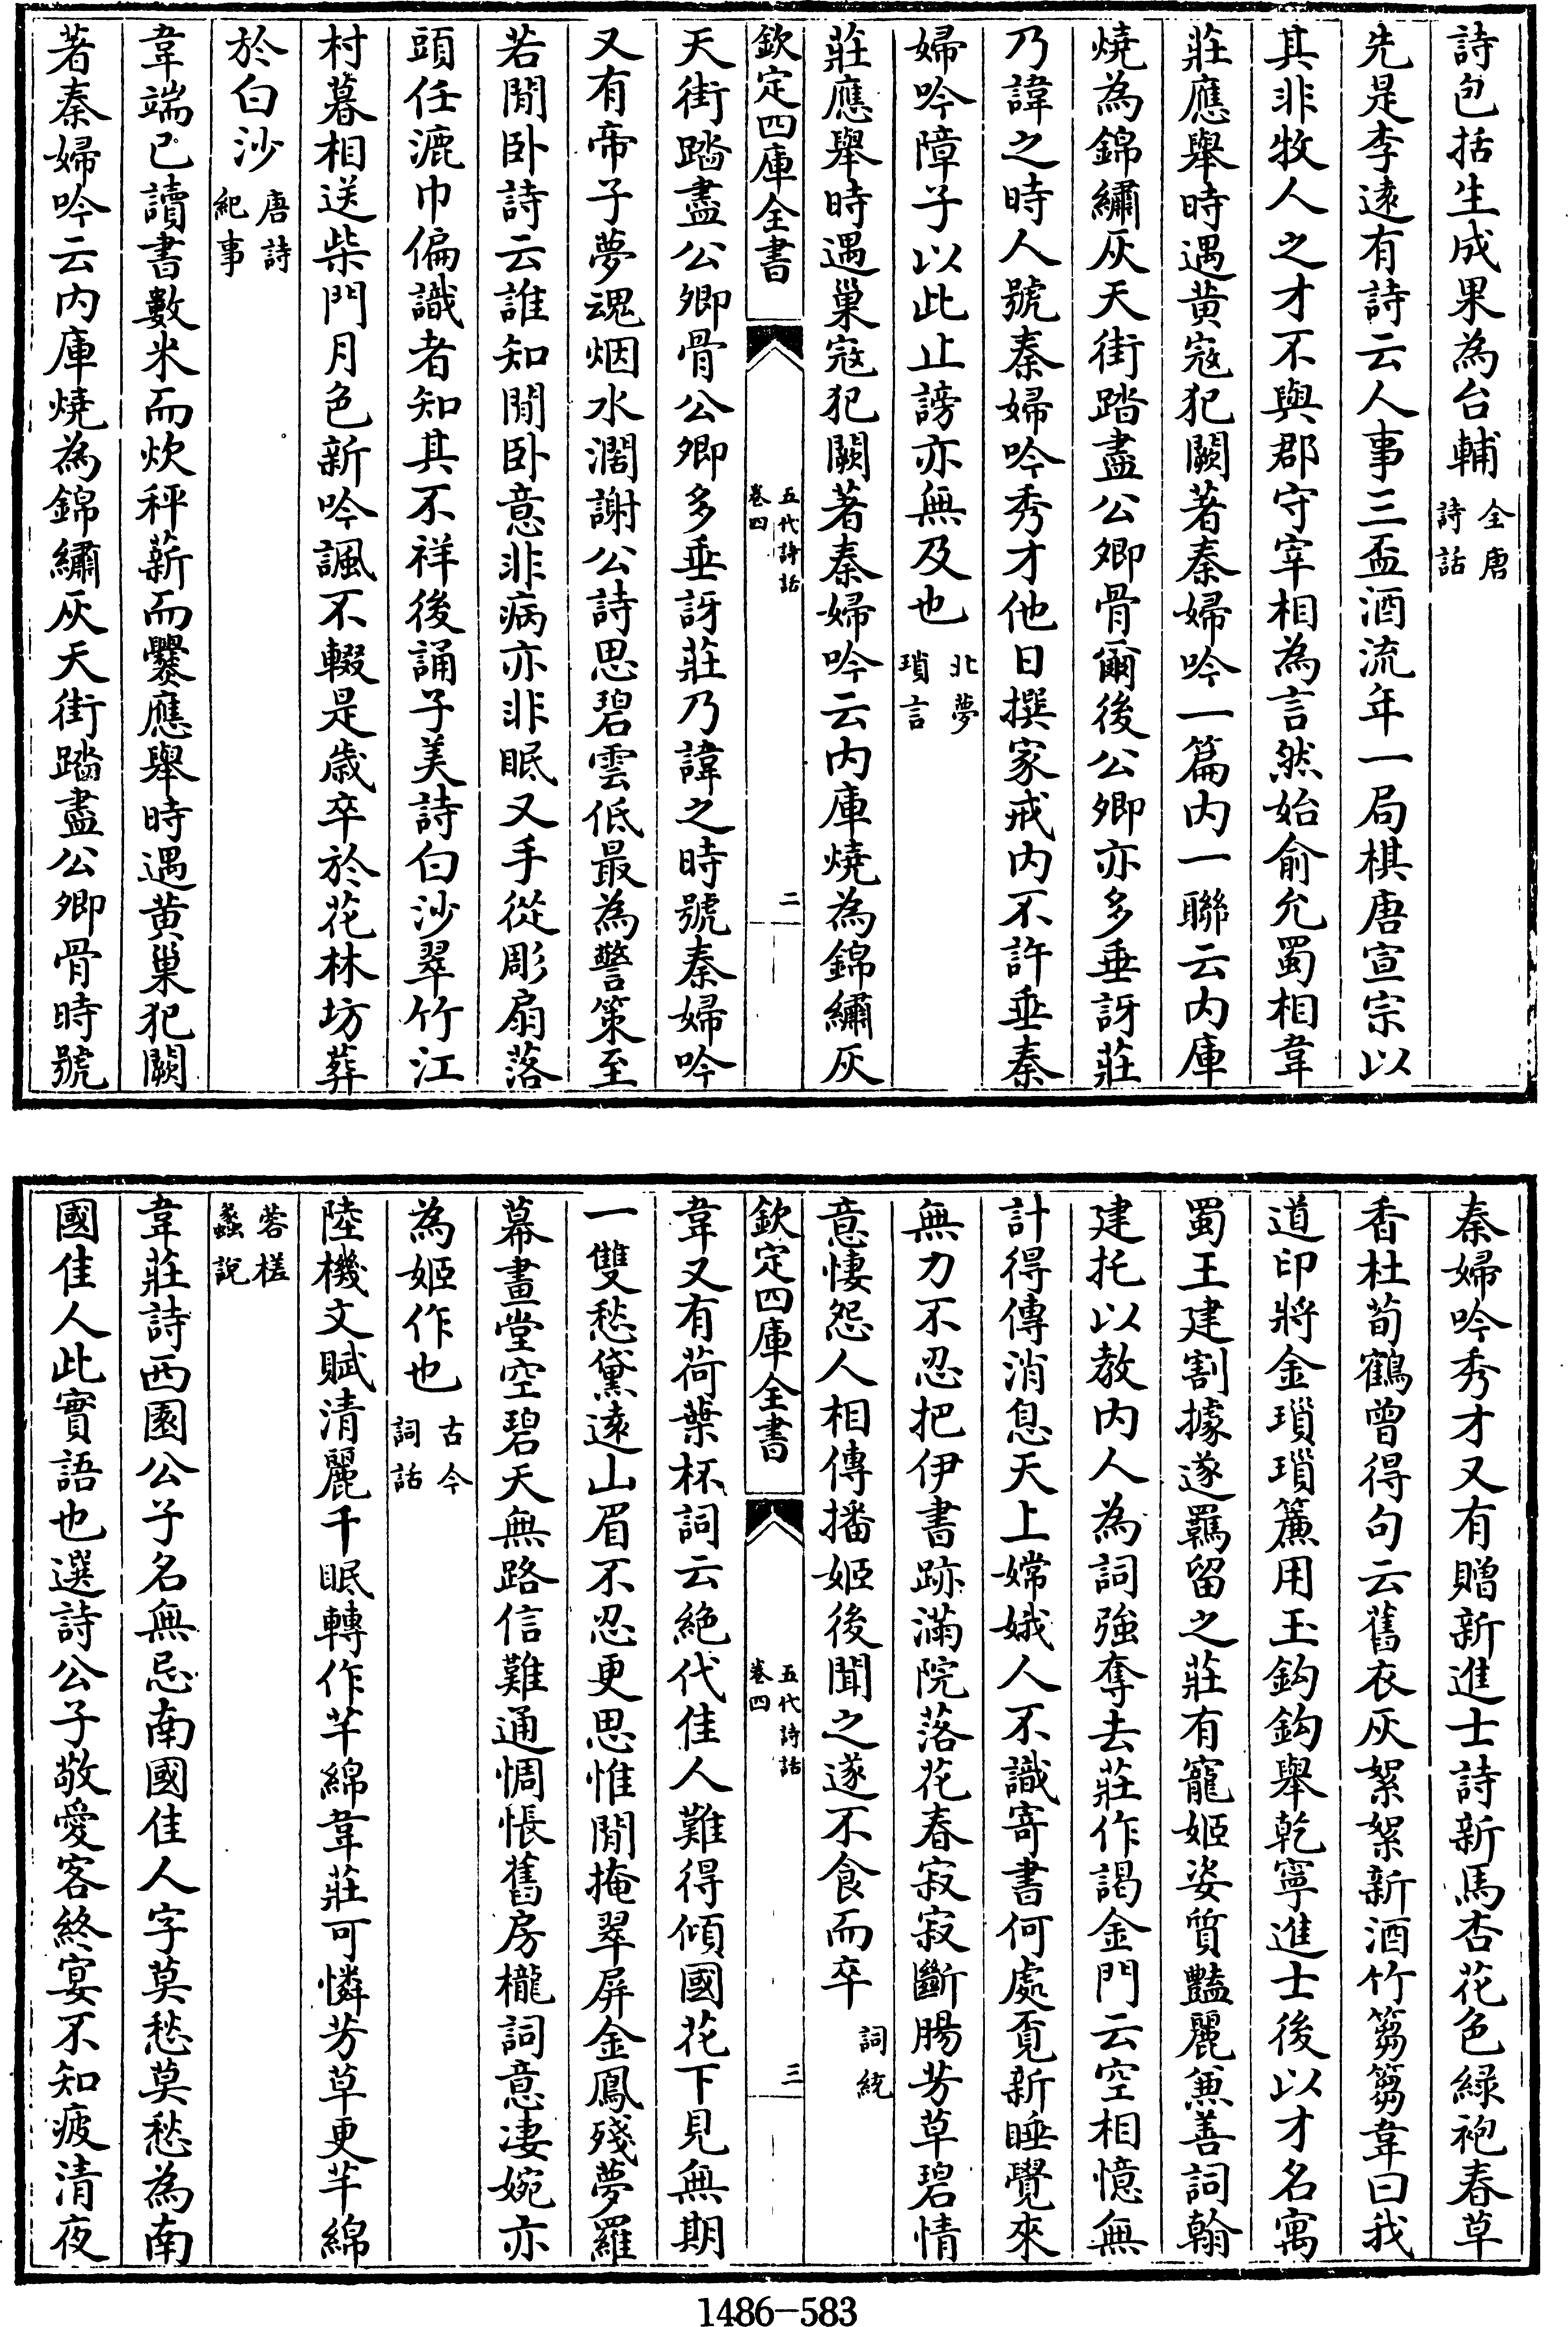 詩包括生成果為台輔全唐詩話
先是李遠有詩云人事三盃酒流年一局棋唐宣宗以
其非牧人之才不與郡守宰相為言然始俞允蜀相韋
莊應舉時遇黄寇犯闕著秦婦吟一篇内一聯云内庫
燒為錦繡灰天街踏盡公卿骨爾後公卿亦多垂訝莊
乃諱之時人號秦婦吟秀才他日撰家戒内不許垂秦
婦吟障子以此止謗亦無及也北夢瑣言
莊應舉時遇巢寇犯闕著秦婦吟云内庫燒為錦繡灰
欽定四庫全書 五代詩話卷四 二
天街踏盡公卿骨公卿多垂訝莊乃諱之時號秦婦吟
又有帝子夢魂烟水濶謝公詩思碧雲低最為警策至
若閒卧詩云誰知閒卧意非病亦非眠又手從彫扇落
頭任漉巾偏識者知其不祥後誦子美詩白沙翠竹江
村暮相送柴門月色新吟諷不輟是歲卒於花林坊葬
於白沙唐詩紀事
韋端已讀書數米而炊秤薪而爨應舉時遇黄巢犯闕
著秦婦吟云内庫燒為錦繡灰天街踏盡公卿骨時號
秦婦吟秀才又有贈新進士詩新馬杏花色緑袍春草
香杜荀鶴曾得句云舊衣灰絮絮新酒竹篘篘韋曰我
道印將金瑣瑣簾用玉鈎鈎舉乾寧進士後以才名寓
蜀王建割據遂羈留之莊有寵姬姿質豔麗兼善詞翰
建托以教内人為詞強奪去莊作謁金門云空相憶無
計得傳消息天上嫦娥人不識寄書何處覓新睡覺來
無力不忍把伊書跡滿院落花春寂寂斷腸芳草碧情
意悽怨人相傳播姬後聞之遂不食而卒詞統
欽定四庫全書 五代詩話卷四 三
韋又有荷葉杯詞云絶代佳人難得傾國花下見無期
一雙愁黛遠山眉不忍更思惟閒掩翠屏金鳳殘夢羅
幕畫堂空碧天無路信難通惆悵舊房櫳詞意凄婉亦
為姬作也古今詞話
陸機文賦清麗千眠轉作芊綿韋莊可憐芳草更芊綿
蓉槎蠡說
韋莊詩西園公子名無忌南國佳人字莫愁莫愁為南
國佳人此實語也選詩公子敬愛客終宴不知疲清夜
1486-583